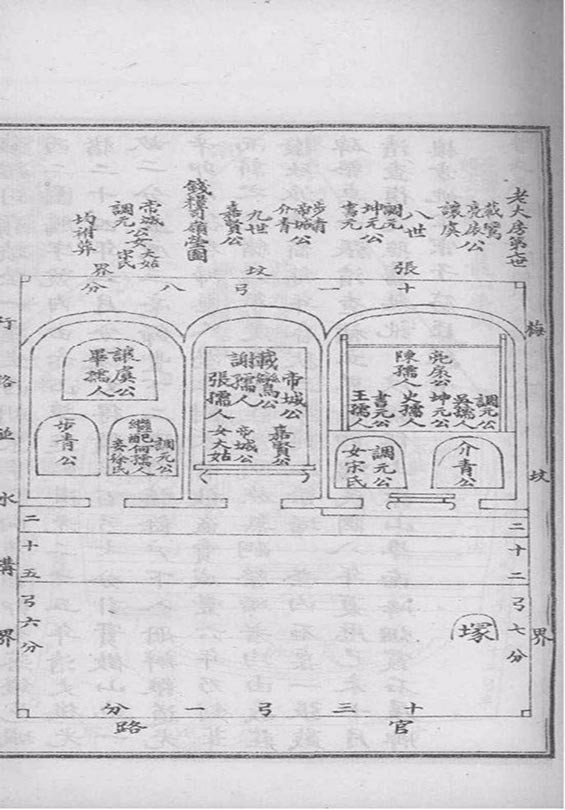 老大房第七世
莪鷺
亮原公
讓虞
八世
調元
坤元公
書元
步青
帝城公
介青
九世
嘉賢公
錢糧司嶺塋圖
帝城公女大姑
調元公女宗氏
均祔葬
張坟界
十一弓八分
梅坟界
二十二弓七分
亮原公
陳孺人
調元公
吳孺人
坤元公
史孺人
書元公
王孺人
介青公
調元公
女宗氏
莪鷺公
謝孺人
帝城公
張孺人
嘉賢公
帝城公
女大姑
讓虞公
畢孺人
調元公
繼配何孺人
妾徐氏
步青公
行路並水溝界
二十五弓六分
塚
十三弓一分
官路